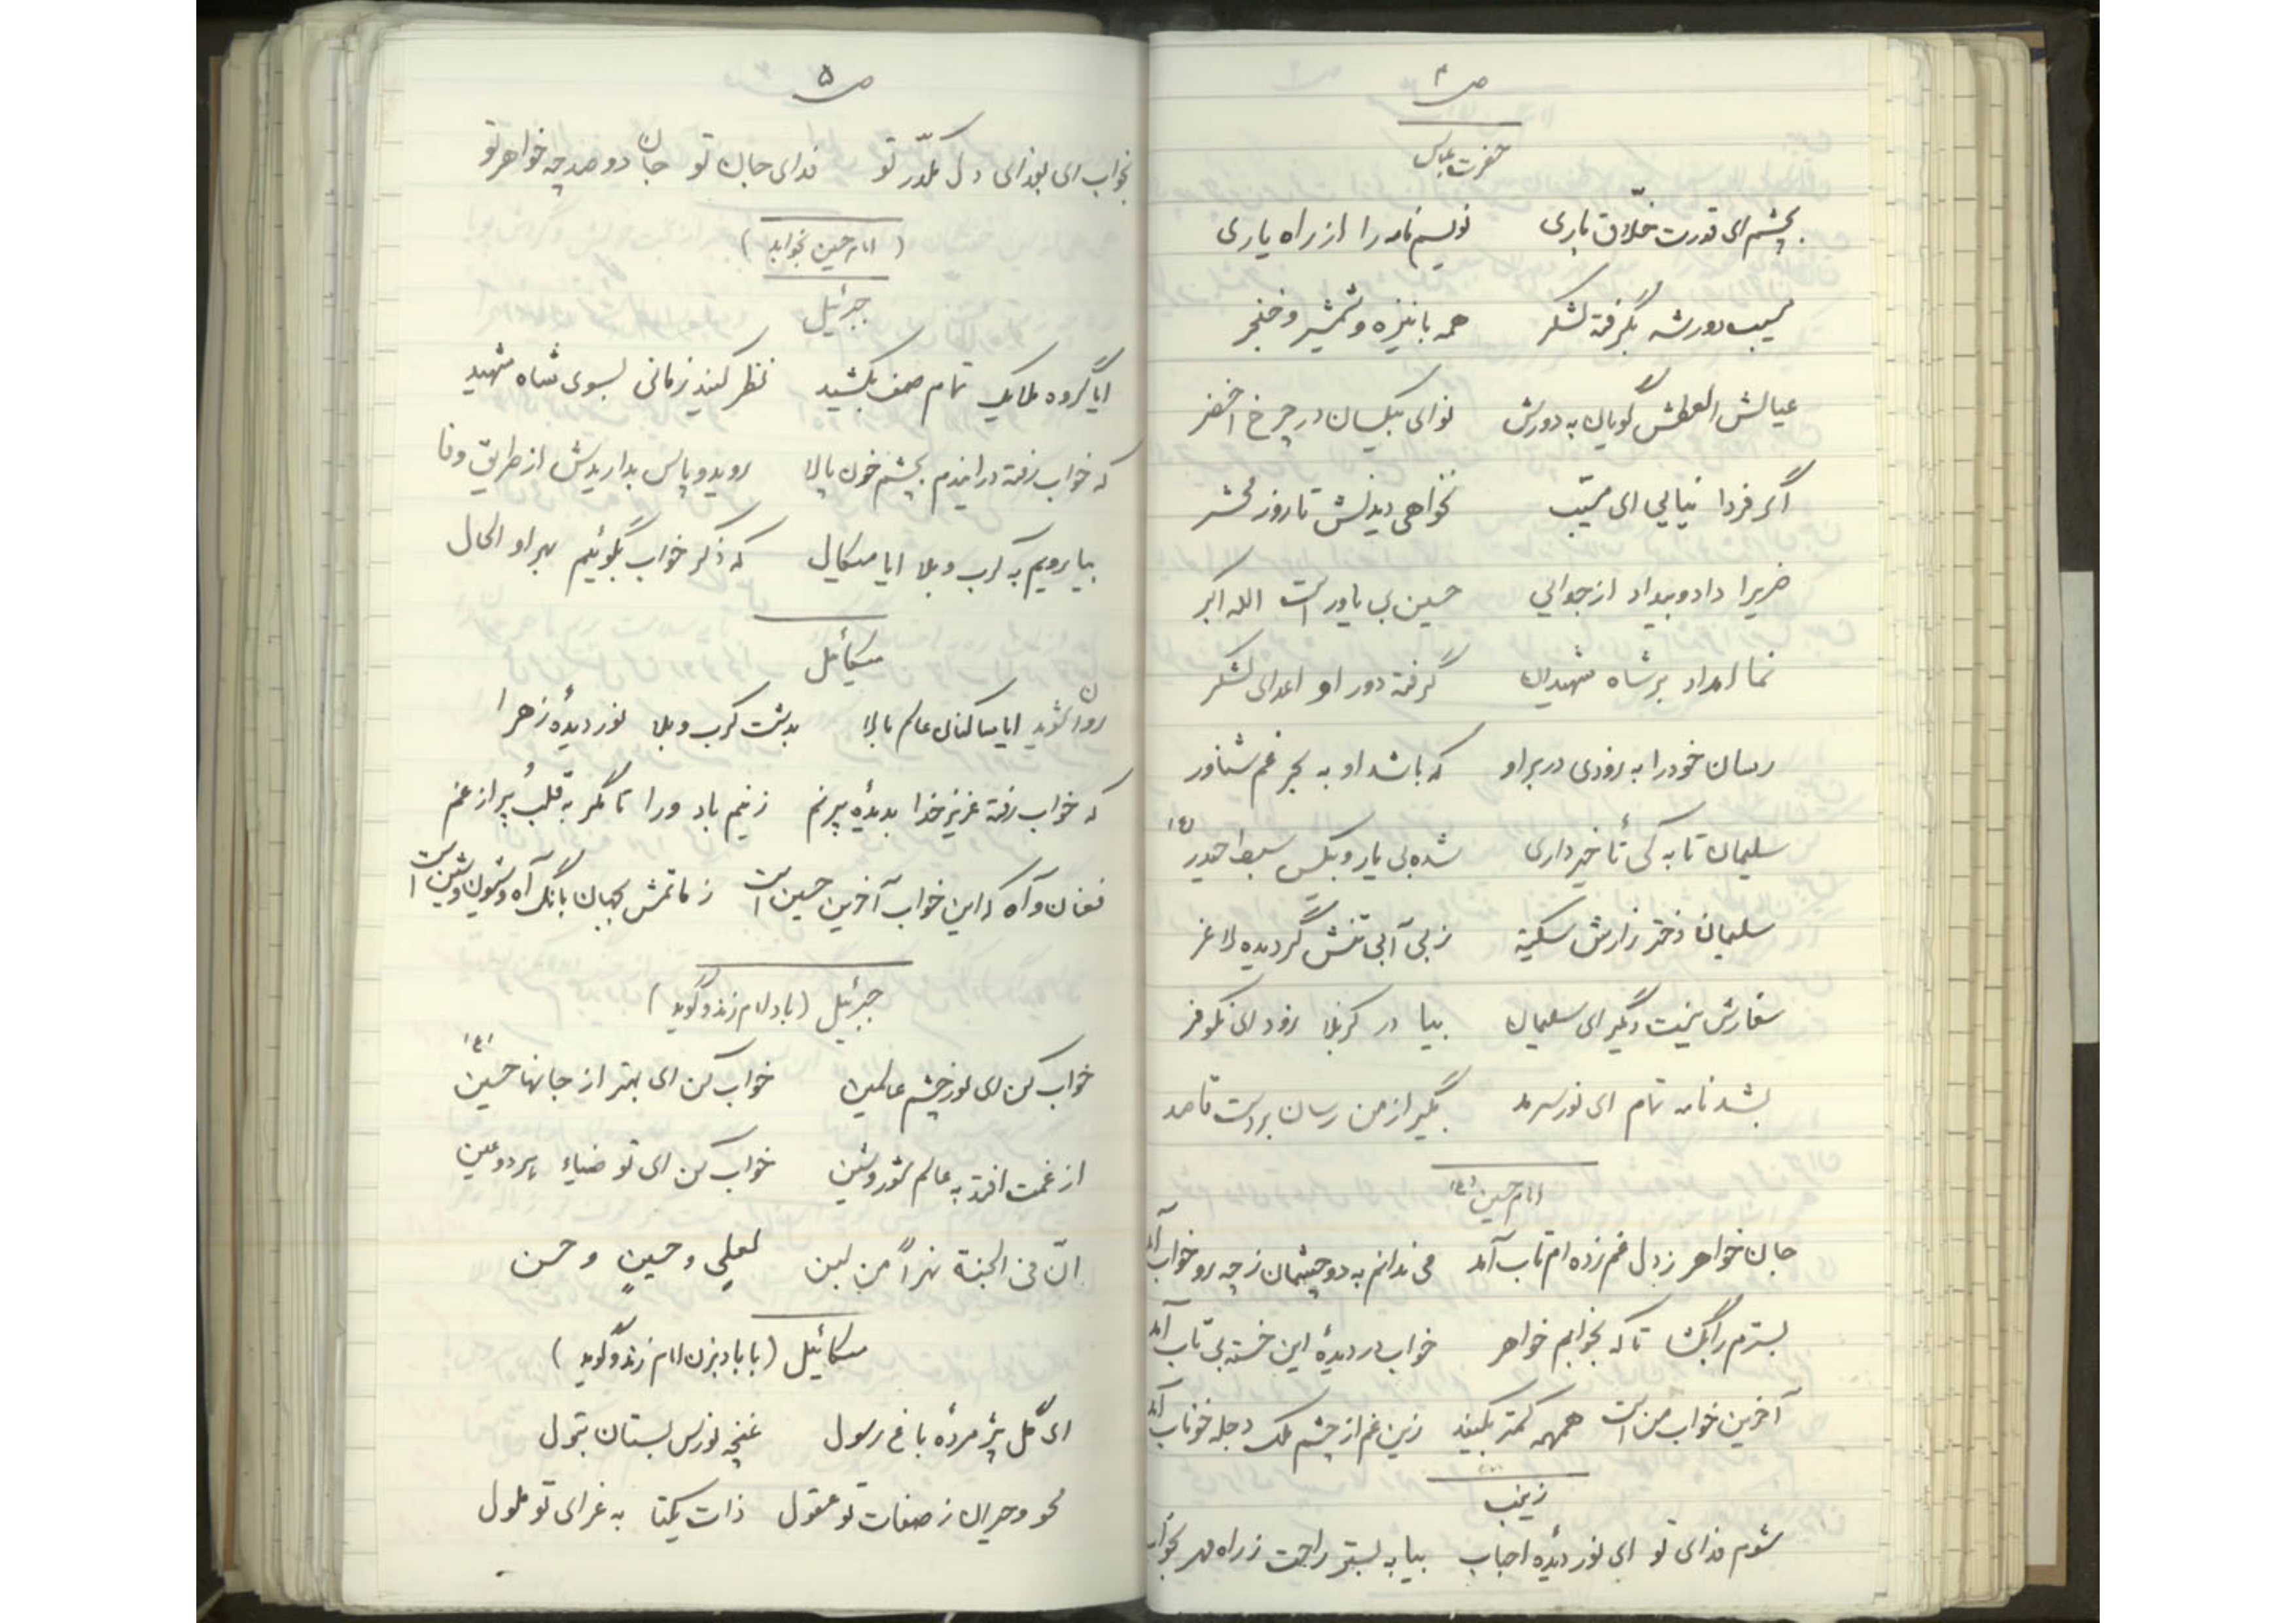 ص۴
حضرت عباس
بچشم ای قدرت خلّاق باری نویسم نامه را از راه یاری
مسیب دور شه بگرفته لشکر همه با نیزه و شمشیر و خنجر
عیالش العطش گویان به دورش نوای بیکسان در چرخ اخضر
اگر فردا نیایی ای مسیّب نخواهی دیدنش تا روز محشر
ضریرا داد و بیداد از جوانی حسین بی یاور است الله اکبر
نما امداد بر شاه شهیدان گرفته دور او اعدای لشکر
رسان خود را به زودی در بر او که باشد او به بحر غم شناور
سلیمان تا به کی تأخیر داری شده بی یار و بیکس سبط حیدر (ع)
سلیمان دختر زارش سکینه ز بی آبی تنش گردیده لاغر
سفارش نیست دیگر ای سلیمان بیا در کربلا زود ای نکوفر
بشد نامه تمام ای نور سرمد بگیر از من رسان بر دست قاصد
امام حسین (ع)
جان خواهر ز دل غم زده ام تاب آمد می ندانم به دو چشمان ز چه رو خواب آمد
بسترم را بگشا تا که بخوابم خواهر خواب در دیدهٔ این خسته بی تاب آمد
آخرین خواب من است همهمه کمتر بکنید زین غم از چشم ملک دجله خوناب آمد
زینب
شوم فدای تو ای نور دیدهٔ احباب بیا به بستر راحت ز راه مهر بخواب
ص۵
بخواب ای بفدای دل مکدّر تو فدای جان تو جان دو صد چه خواهر تو
(امام حسین بخوابد)
جبرئیل
ایا گروه ملایک تمام صف بکشید نظر کنید زمانی بسوی شاه شهید
که خواب رفته در ایندم بچشم خون پالا روید و پاس بداریدش از طریق وفا
بیا رویم به کرب و بلا ایا میکال که ذکر خواب بگوئیم بهر او الحال
میکائیل
روان شوید ایا ساکنان عالم بالا بدشت کرب و بلا نور دیدهٔ زهرا
که خواب رفته عزیز خدا بدیدهٔ پرنم زنیم باد ورا تا مگر به قلب پُر از غم
فغان و آه که این خواب آخرین حسین است ز ماتمش بجهان بانگ آه و شیون و شین است
جبرئیل (باد امام زند و گوید)
خواب کن ای نور چشم عالمین خواب کن ای بهتر از جانها حسین (ع)
از غمت افتد به عالم شور و شین خواب کن ای تو ضیاء هر دو عین
انّ فی الجنة نهراً من لبن لعلیٍ و حسینٍ و حسن
میکائیل (با بادبزن امام زند و گوید)
ای گل پژمردهٔ باغ رسول غنچه نورس بستان بتول
محو و حیران ز صفات تو عقول ذات یکتا به عزای تو ملول